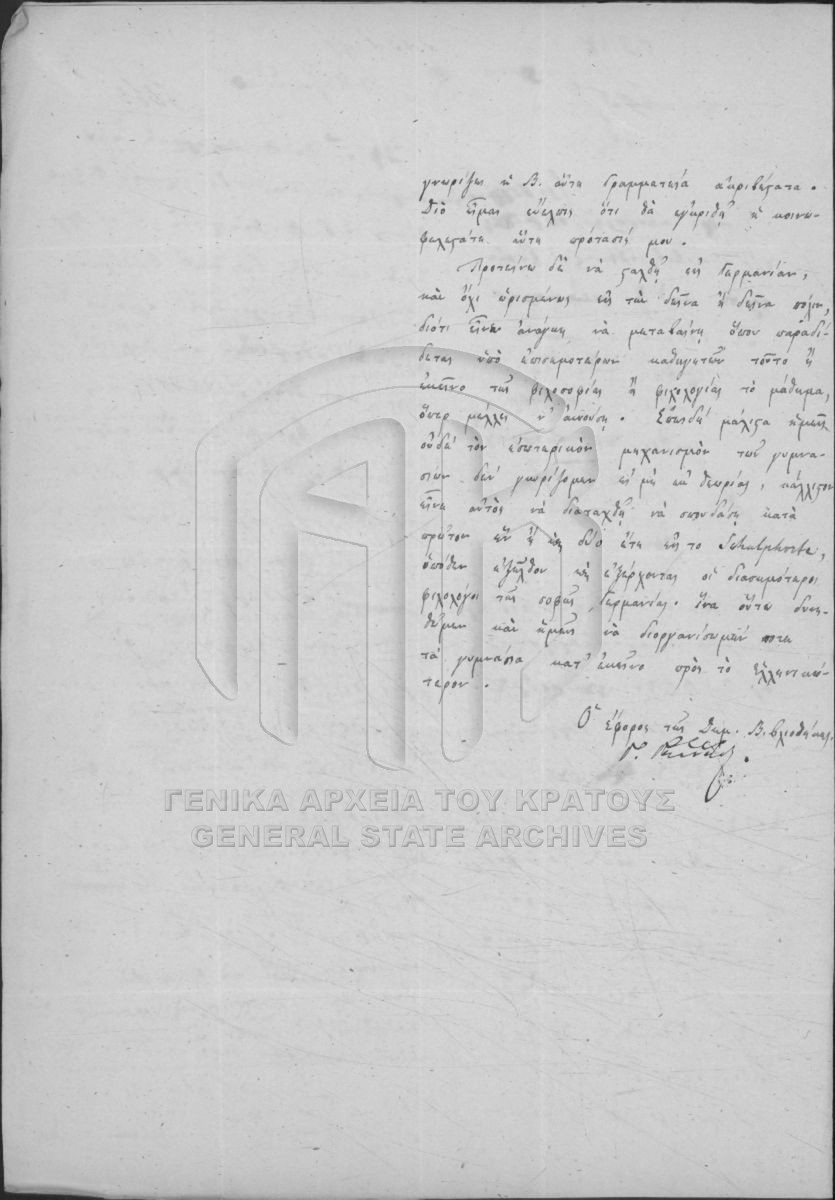 γνωρίζει ἡ Β. αὕτη Γραμματεία ἀκριβέστατα.
Διὸ εἶμαι εὔελπις ὅτι θὰ ἐγκριθῇ ἡ κοινω-
φελεστάτη αὕτη πρότασίς μου.
Προτείνω δὲ νὰ σταλθῇ εἰς Γερμανίαν,
καὶ ὄχι ὡρισμένως εἰς τὴν δεῖνα ἢ δεῖνα πόλιν,
διότι εἶναι ἀνάγκη νὰ μεταβαίνῃ ὅπου παραδί-
δεται ὑπὸ ἐπισημοτέρων καθηγητῶν τοῦτο ἢ
ἐκεῖνο τῆς φιλοσοφίας ἢ φιλολογίας τὸ μάθημα,
ὅπερ μέλλει ν' ἀκούσῃ. Ἐπειδὴ μάλιστα ἡμεῖς
οὐδὲ τὸν ἐσωτερικὸν μηχανισμὸν τῶν γυμνα-
σίων δὲν γνωρίζομεν εἰ μὴ ἐκ θεωρίας, κάλλιστον
εἶναι αὐτὸς νὰ διαταχθῇ νὰ σπουδάσῃ κατὰ
πρῶτον ἓν ἢ καὶ δύο ἔτη εἰς τὸ Schulpforte,
ὁπόθεν ἐξῆλθον καὶ ἐξέρχονται οἱ διασημότεροι
φιλολόγοι τῆς σοφῆς Γερμανίας. Ἵνα οὕτω δυνη-
θῶμεν καὶ ἡμεῖς νὰ διοργανίσωμέν ποτε
τὰ γυμνάσια κατ' ἐκεῖνο πρὸς τὸ ἑλληνικώ-
τερον.
Ὁ ἔφορος τῆς Δημ. Βιβλιοθήκης.
ΓΕΝΙΚΑ ΑΡΧΕΙΑ ΤΟΥ ΚΡΑΤΟΥΣ
GENERAL STATE ARCHIVES